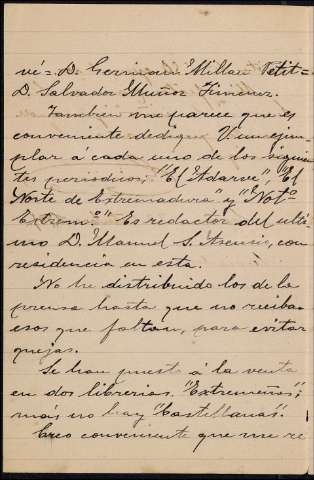 vé = D. German Millan Petit =
D. Salvador Muñoz Jimenez.
Tambien me parece que es
conveniente dedique V un ejem-
plar á cada uno de los siguien
tes periodicos; "El Adarve" "El
Norte de Extremadura" y "Notº
Extremº" Es redactor del ulti
mo D. Manuel S. Asensio, con
residencia en esta.
No he distribuido los de la
prensa hasta que no reciba
esos que faltan, para evitar
quejas.
Se han puesto á la venta
en dos librerias. "Extremeñas";
más no hay "Castellanas".
Creo conveniente que me re